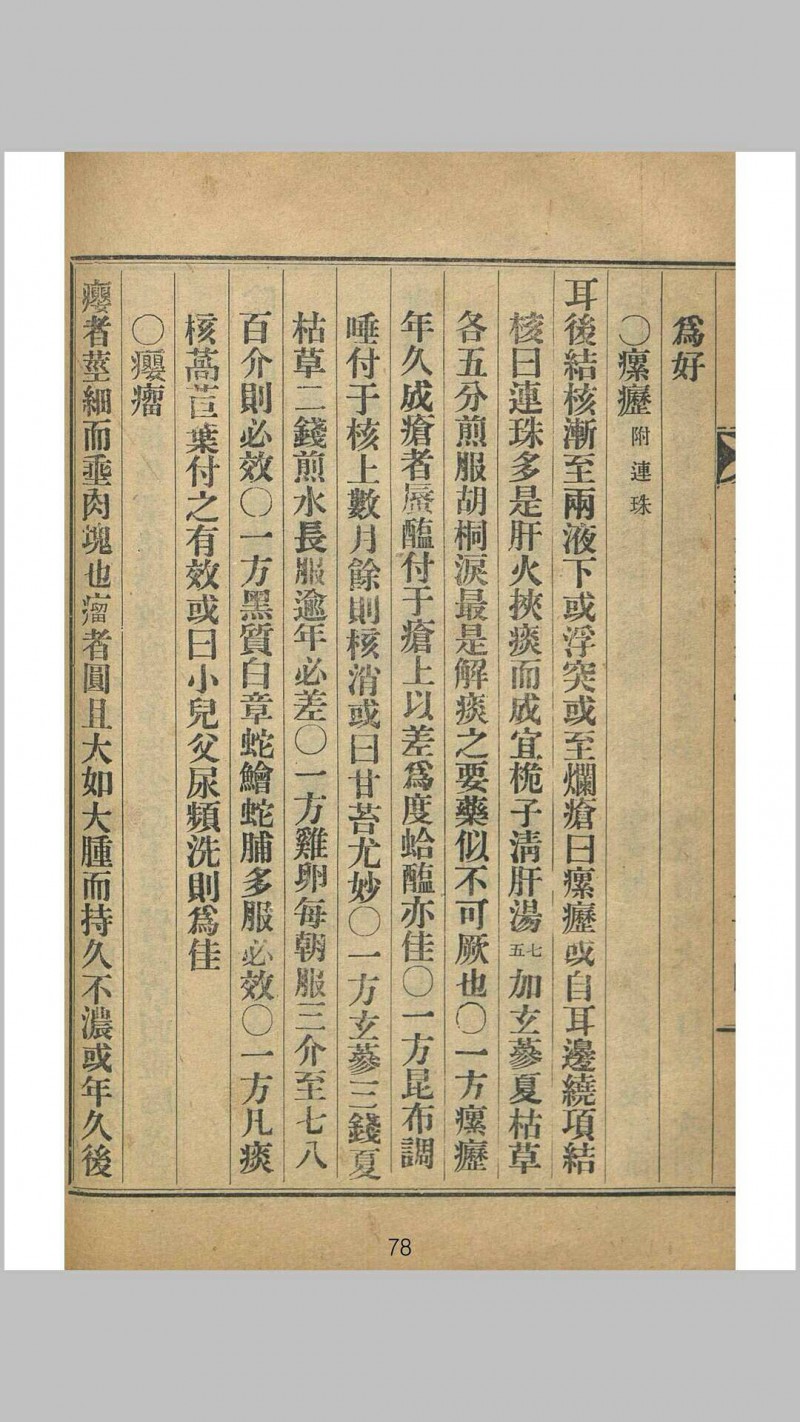 爲好
〇瘰癧附連珠
耳後結核漸至兩液下或浮突或至爛瘡曰瘰癧或自耳邊繞項結
核曰連珠多是肝火挾痰而成宜梔子淸肝湯五七加玄蔘夏枯草
各五分煎服胡桐淚最是解痰之要藥似不可厥也〇一方瘰癧
年久成瘡者蜃醢付于瘡上以差爲度蛤醢亦佳〇一方昆布調
唾付于核上數月餘則核消或曰甘苔尤妙〇一方玄蔘三錢夏
枯草二錢煎水長服逾年必差〇一方雞卵每朝服三介至七八
百介則必效〇一方黑質白章蛇鱠蛇脯多服必效〇一方凡痰
核萵苣葉付之有效或曰小兒父尿頻洗則爲佳
〇癭瘤
癭者莖細而垂肉塊也瘤者圓且大如大腫而持久不濃或年久後
78